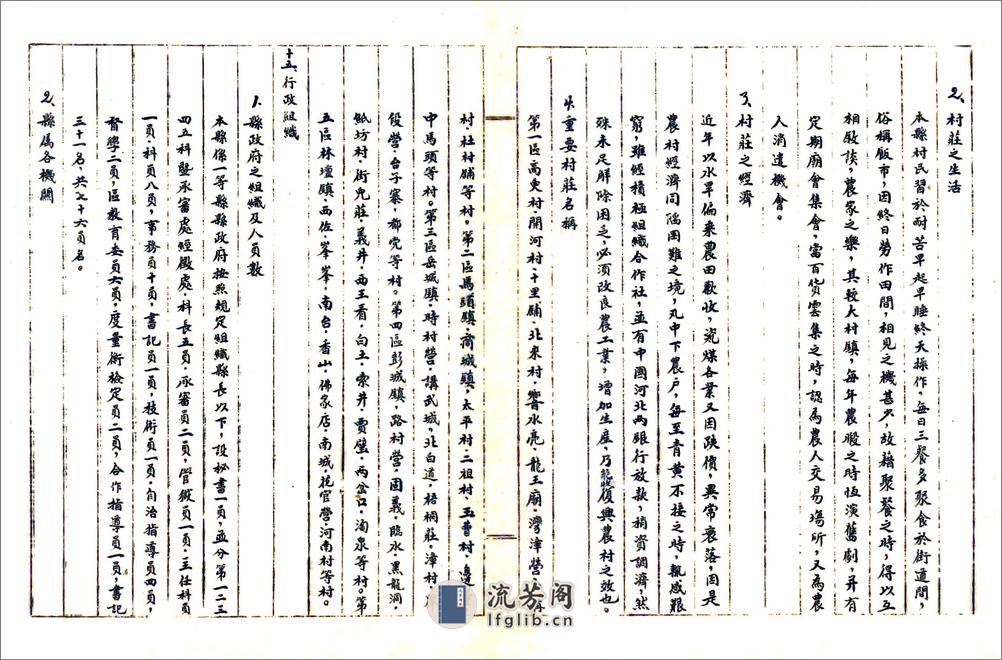 2、村莊之生活
本縣村民習於耐苦早起早睡終天操作，每日三餐多聚食於街道間，
俗稱飯市，因終日勞作田間，相見之機甚少，故藉聚餐之時，得以互
相敘談，農家之樂，其較大村鎮，每年農暇之時恆演舊劇，并有
定期廟會集會，當百貨雲集之時，認為農人交易場所，又為農
人消遣機會。
3、村莊之經濟
近年以水旱偏來農田歉收，瓷煤各業又因跌價，異常衰落，因是
農村經濟同陷困難之境，凡中下農戶，每至青黃不接之時，輒感艱
窮，雖經積極組織合作社，並有中國河北兩銀行放款，稍資調濟，然
殊未足解除困乏，必須改良農工業，增加生產，乃能復興農村之效也。
4、重要村莊名稱
第一區高臾村·開河村·十里舖·北來村·響水亮·龍王廟·灣漳營·
村·杜村舖等村，第二區馬頭鎮·商城鎮，太平村·二祖村·玉曹村·邊
中馬頭等村。第三區岳城鎮·時村營·講武城·北白道·梧桐莊·漳村·
段營·台子寨·都党等村。第四區彭城鎮·路村營·固義·臨水·黑龍洞·
紙坊村·街兒莊·義井·西王看·白土·索井·賈壁·兩岔口·淘泉等村。第
五區林壇鎮·西佐·峯峯·南台·香山·佛家店·南城·花官營·河南村等村。
十五、行政組織
1、縣政府之組織及人員數
本縣係一等縣縣政府按照規定組織縣長以下，設秘書一員，並分第一二三
四五科暨承審處經徵處·科長五員·承審員二員，管獄員一員·主任科員
一員·科員八員，事務員十員，書記員一員，技術員一員·自治指導員四員，
督學二員，區教育委員六員，度量衡檢定員二員，合作指導員一員，書記
三十一名，共七十六員名。
2、縣屬各機關
流芳阁
lfglib.cn